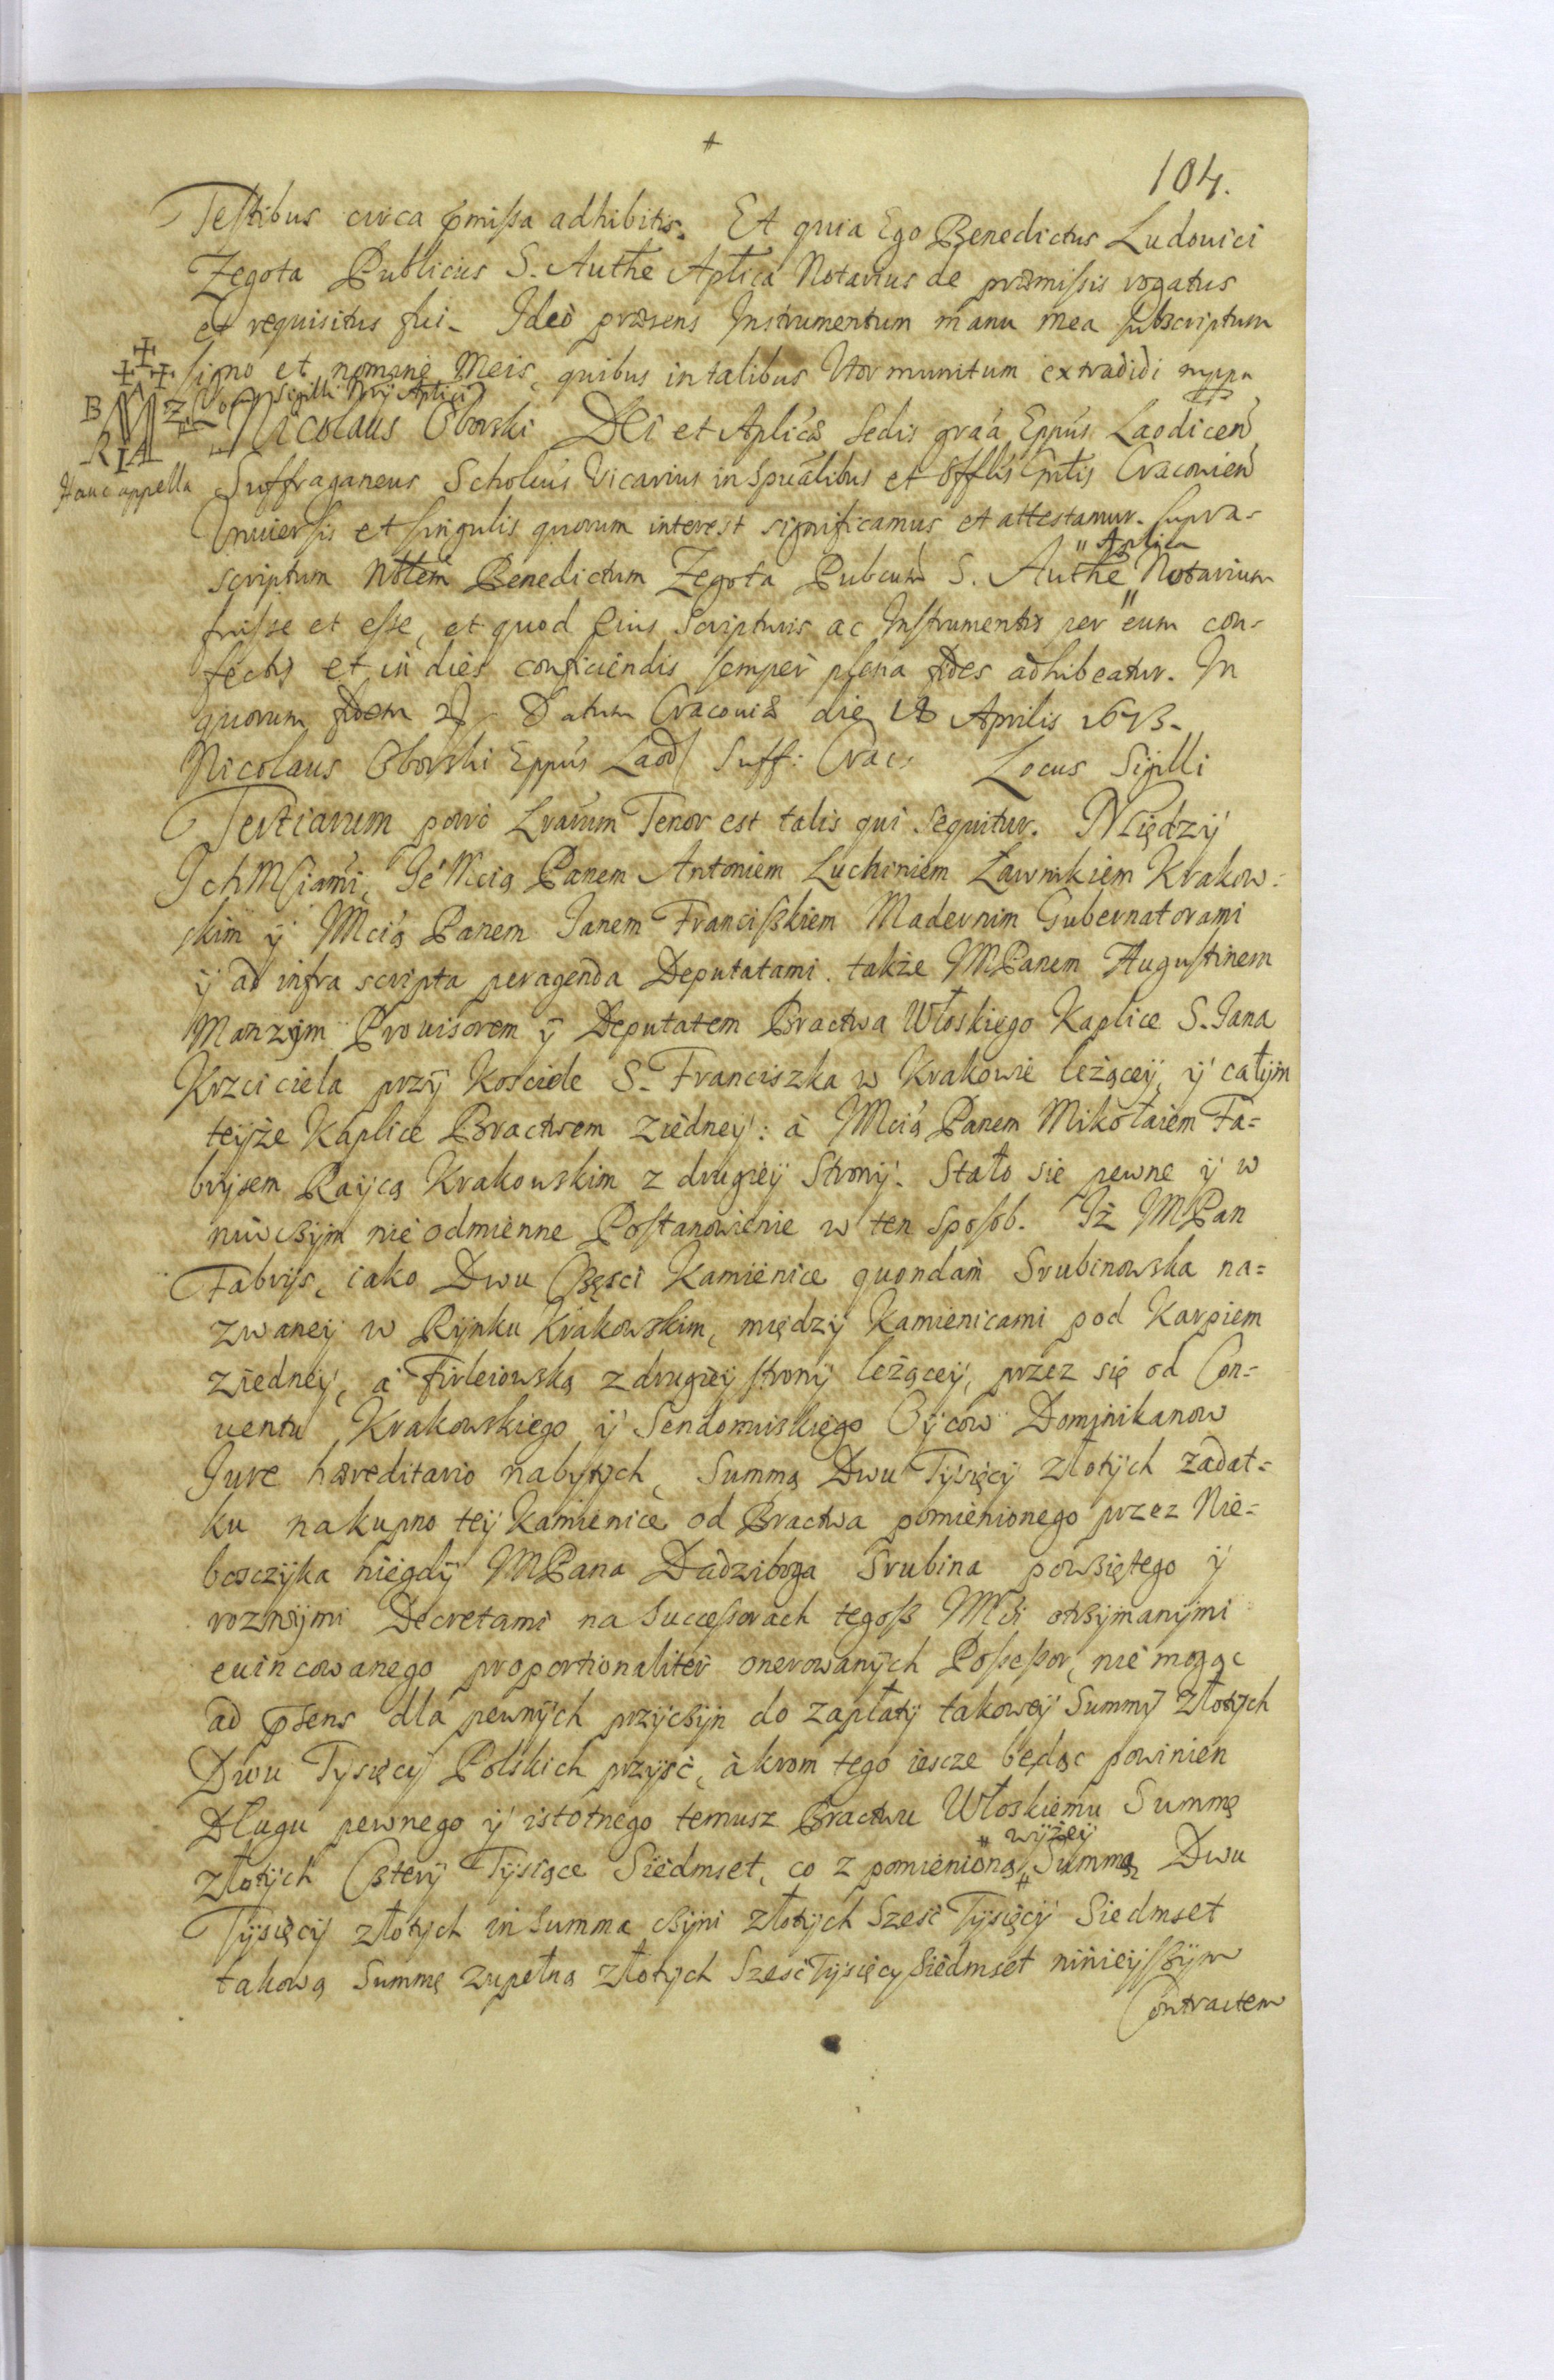 104.
Testibus circa pmissa adhibitis. Et quia Ego Benedictus Ludouici
Zegota Publicus S. Authe Aplica Notarius de præmissis rogatus
et requisitus fui. Ideò præsens Instrumentum manu mea subscriptum
signo et nomine Meis, quibus in talibus Vtor munitum extradidi mppa
Sigilli Nrij Aplici
B M Z
R I A
Nicolaus Oborski DEi et Aplicæ Sedis graa Eppús Laodiceń
Hanc appella
Suffraganeus Scholcús Vicarius in Spúalibus et Offlís Gnlis Cracouień
Vniuersis et singulis quorum interest significamus et attestamur. supra-
scriptum Nbtem Benedictum Zegota Pubcum S. Authe " Aplica Notarium
fuisse et esse, et quod Eius Scripturis ac Instrumentis per eum con-
fectis et in dies conficiendis semper plena fides adhibeatur. In
quorum fidem Datum Cracouiæ die 18 Aprilis 1673.
Nicolaus Oborski Eppús Laod Suff: Crac: Locus Sigilli
Tertiarum porro Lrarum Tenor est talis qui sequitur. Między
IchMściami, Je Mcią Panem Antoniem Luchiniem Ławnikiem Krakow:
skim ÿ Mcią Panem Janem Franciszkiem Madernim Gubernatorami
ÿ ad infra scripta peragenda Deputatami. także MPanem Augustinem
Manzÿm Prouisorem ÿ Deputatem Bractwa Włoskiego Kaplice S. Jana
Krzciciela przÿ Kosciele S. Franciszka w Krakowie leżącej, ÿ całÿm
teÿże Kaplice Bractwem ziedneÿ: à Mcią Panem Mikołaiem Fa=
brÿsem Raÿcą Krakowskim z drugieÿ Stronÿ. Stało się pewne ÿ w
niwczÿm nieodmienne Postanowienie w ten sposob. Iż MPan
Fabrÿs, iako Dwu Części Kamienice quondam Srubinowska na=
zwaneÿ w Rÿnku Krakowskim, międzÿ Kamienicami pod Karpiem
ziedneÿ, à Firleiowską z drugieÿ stronÿ leżąceÿ, przez się od Con=
uentu Krakowskiego ÿ Sendomirskiego Oÿców Dominikanow
Jure hæreditario nabÿtÿch, Summą Dwu Tÿsięcÿ złotÿch zadat=
ku nakupno teÿ Kamienice od Bractwa pomienionego przez Nie=
bosczÿka niegdÿ MPana Dadziboga Srubina powziętego ÿ
roznÿmi Decretami na Successorach tegosz Mci otrzÿmanÿmi
euincowanego proportionaliter onerowanÿch Possessor, nie mogąc
ad psens dla pewnÿch przÿczÿn do zapłatÿ takoweÿ Summÿ złotÿch
Dwu Tysięcÿ Polskich przÿść, à krom tego iescze będąc powinien
Długu pewnego ÿ istotnego temusz Bractwu Włoskiemu Summę
złotÿch Czterÿ Tÿsiące Siedmset, co z pomienioną wÿżeÿ Summą Dwu
Tÿsięcÿ złotÿch in Summa czÿni złotÿch Szesć Tÿsięcÿ Siedmset
takową Summę zupełną złotÿch Szesć Tÿsięcÿ Siedmset ninieÿszÿm
Contractem